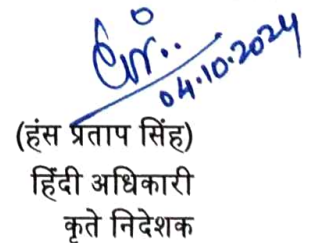 04.10.2024
(हंस प्रताप सिंह)
हिंदी अधिकारी
कृते निदेशक